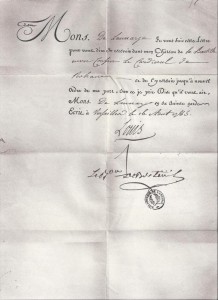 Mons. De Launay Je vous fais cette Lettre
pour vous dire de recevoir dans mon Château de la Bastille
mon Cousin le Cardinal de
Rohan
et de l'y retenir jusqu'à nouvel
Ordre de ma part. Sur ce je prie Dieu qu'il vous ait,
Mons. De Launay en sa sainte garde.
Ecrit à Versailles le 16 Août 1785.
Louis
Le Bon De Breteuil